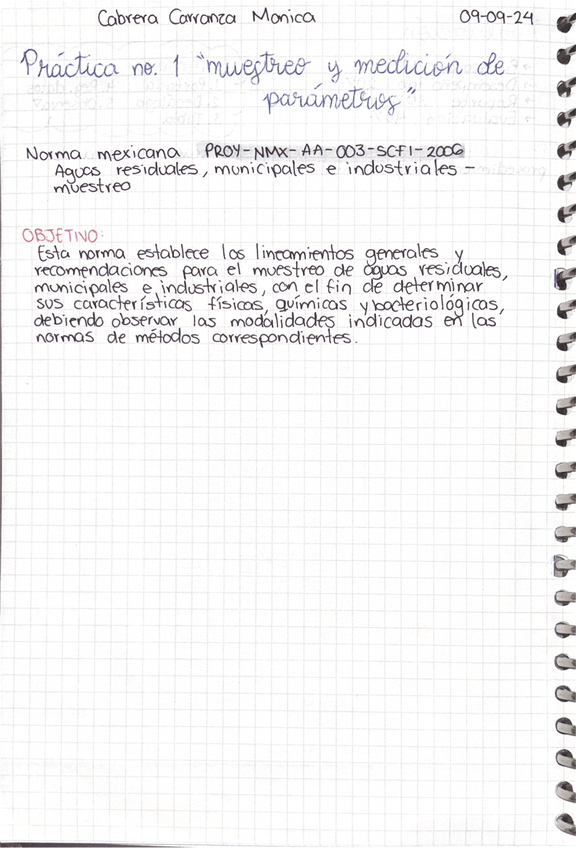 Cabrera Carranza Monica 09-09-24
Práctica no. 1 "muestreo y medición de
parámetros"
Norma mexicana PROY-NMX-AA-003-SCFI-2006
Aguas residuales, municipales e industriales -
muestreo
OBJETIVO:
Esta norma establece los lineamientos generales y
recomendaciones para el muestreo de aguas residuales,
municipales e industriales, con el fin de determinar
sus características físicas, químicas y bacteriológicas,
debiendo observar las modalidades indicadas en las
normas de métodos correspondientes.